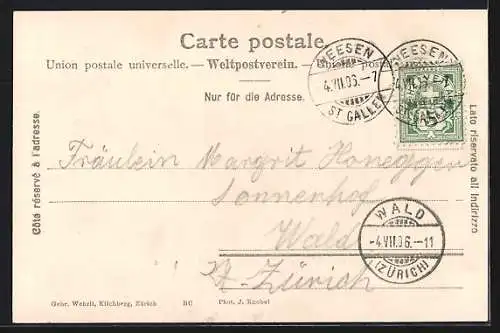 Carte postale.
Union postale universelle. — Weltpostverein. — Unione postale
Nur für die Adresse.
Côté réservé à l'adresse.
Lato riservato all' indirizzo
NEESEN
4.VII.06.-7
ST GALLEN
NEESEN
4.VII.06
WALD
-4.VII.06.-11
(ZÜRICH)
Fräulein Margrit Honegger
Sonnenhof
Wald
Kt. Zürich
Gebr. Wehrli, Kilchberg, Zürich
Phot. J. Knobel